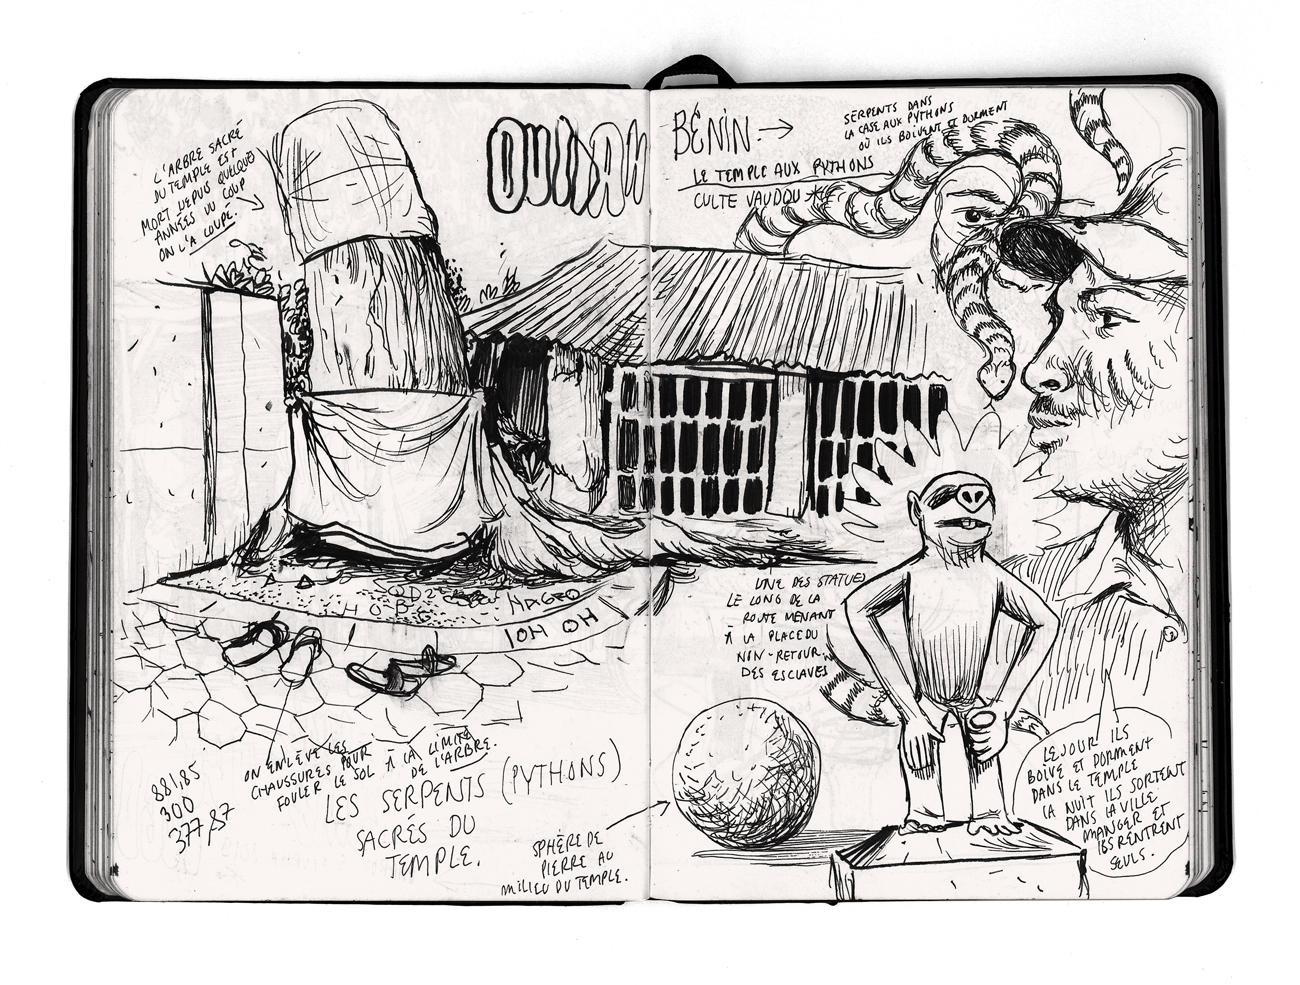 L'ARBRE SACRÉ
DU TEMPLE EST
MORT DEPUIS QUELQUES
ANNÉES DU COUP
ON L'A COUPÉ.
OUIDAH
BÉNIN →
LE TEMPLE AUX PYTHONS
CULTE VAUDOU
SERPENTS DANS
LA CASE AUX PYTHONS
OÙ ILS BOIVENT ET DORMENT
IOH OH
UNE DES STATUES
LE LONG DE LA
ROUTE MENANT
À LA PLACE DU
NON-RETOUR
DES ESCLAVES
881,85
300
377,87
ON ENLÈVE LES
CHAUSSURES POUR
FOULER LE SOL À LA LIMITE
DE L'ARBRE.
LES SERPENTS (PYTHONS)
SACRÉS DU
TEMPLE.
SPHÈRE DE
PIERRE AU
MILIEU DU TEMPLE.
LE JOUR ILS
BOIVE ET DORMENT
DANS LE TEMPLE
LA NUIT ILS SORTENT
DANS LA VILLE
MANGER ET
ILS RENTRENT
SEULS.